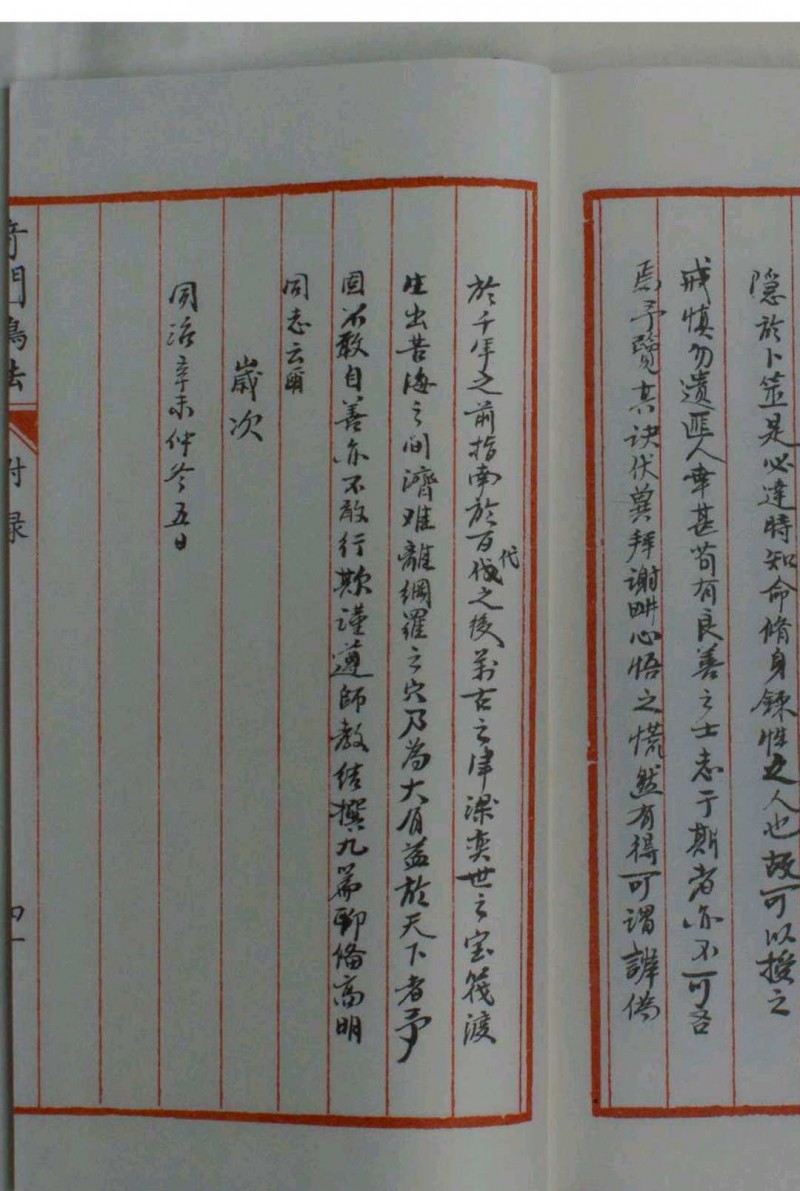 隐於卜筮是必達時知命脩身鍊性之人也故可以授之
戒慎勿遺匪人幸甚苟有良善之士志于斯者亦不可吝
焉予覽其訣伏冀拜謝畊心悟之慌然有得可謂辨偽
於千年之前指南於百代之後萬古之津梁奕世之宝筏渡
生出苦海之间濟难離綱羅之穴乃為大有益於天下者予
固不敢自善亦不敢行欺謹遵師教结撰九篇聊偹高明
同志云爾
嵗次
同治辛未仲冬五日
附录